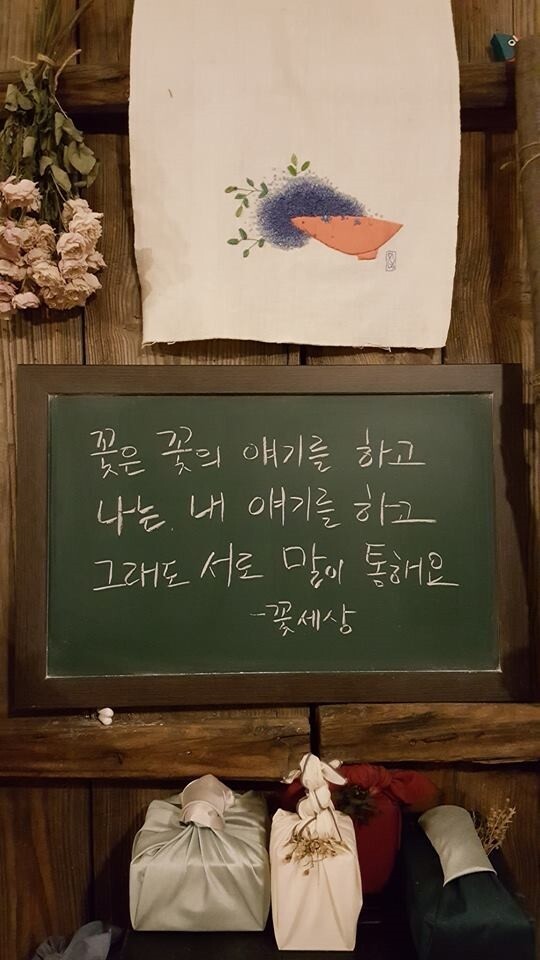 꽃은 꽃의 얘기를 하고
나는 내 얘기를 하고
그래도 서로 말이 통해요
-꽃세상